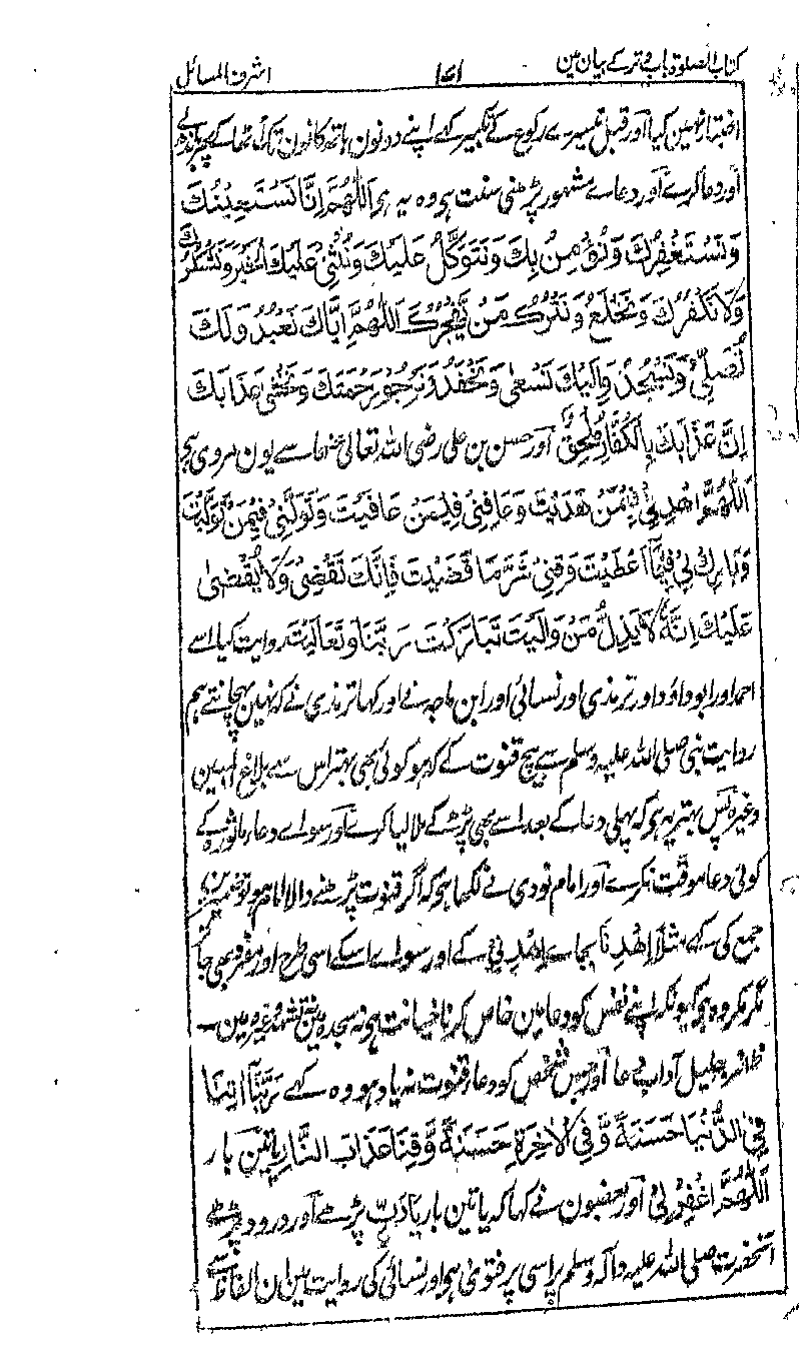 کتاب الصلوۃ باب وتر کے بیان مین ۱۶۱ اشرف المسائل
اختیار نہین کیا اور قبل تیسرے رکوع کے تکبیر کہے اپنے دونون ہاتھ کانون تک اُٹھا کے پھر باندھ لے
اور دعا کرے اور دعاے مشہور پڑھنی سنت ہو وہ یہ ہو اَللّٰهُمَّ اِنَّا نَسْتَعِيْنُكَ
وَنَسْتَغْفِرُكَ وَنُؤْمِنُ بِكَ وَنَتَوَكَّلُ عَلَيْكَ وَنُثْنِيْ عَلَيْكَ الْخَيْرَ وَنَشْكُرُكَ
وَلَا نَكْفُرُكَ وَنَخْلَعُ وَنَتْرُكُ مَنْ يَّفْجُرُكَ اَللّٰهُمَّ اِيَّاكَ نَعْبُدُ وَلَكَ
نُصَلِّيْ وَنَسْجُدُ وَاِلَيْكَ نَسْعٰى وَنَحْفِدُ وَنَرْجُوْ رَحْمَتَكَ وَنَخْشٰى عَذَابَكَ
اِنَّ عَذَابَكَ بِالْكُفَّارِ مُلْحِقٌ اور حسن بن علی رضی اللہ تعالی عنہما سے یون مروی ہی
اَللّٰهُمَّ اهْدِنِيْ فِيْمَنْ هَدَيْتَ وَعَافِنِيْ فِيْمَنْ عَافَيْتَ وَتَوَلَّنِيْ فِيْمَنْ تَوَلَّيْتَ
وَبَارِكْ لِيْ فِيْمَا اَعْطَيْتَ وَقِنِيْ شَرَّ مَا قَضَيْتَ فَاِنَّكَ تَقْضِيْ وَلَا يُقْضٰى
عَلَيْكَ اِنَّهٗ لَا يَذِلُّ مَنْ وَالَيْتَ تَبَارَكْتَ رَبَّنَا وَتَعَالَيْتَ روایت کیا اسے
احمد اور ابوداؤد اور ترمذی اور نسائی اور ابن ماجہ نے اور کہا ترمذی نے کہ نہین پہچانتے ہم
روایت نبی صلی اللہ علیہ وسلم سے بیچ قنوت کے کہ ہو کوئی بھی بہتر اس سے بلاغ المبین
وغیرہ پس بہتر یہ ہو کہ پہلی دعا کے بعد اسے بھی پڑھ کے ملا لیا کرے اور سواے دعاء ماثورہ کے
کوئی دعا موقت نکرے اور امام نووی نے لکھا ہو کہ اگر قنوت پڑھنے والا امام ہو تو ضمیرین
جمع کی کہے مثلا اِهْدِنَا بجاے اِهْدِنِيْ کے اور سواے اسکے اسی طرح اور مفرد بھی جائز
مگر مکروہ ہو کیونکہ اپنے نفس کو دعا مین خاص کرنا خیانت ہو نہ سجدہ مین تشہد وغیرہ مین۔
ظائر جلیل آداب دعا اور جس شخص کو دعاء قنوت نہ یاد ہو وہ کہے رَبَّنَا اٰتِنَا
فِي الدُّنْيَا حَسَنَةً وَّفِي الْاٰخِرَةِ حَسَنَةً وَّقِنَا عَذَابَ النَّارِ یا تین بار
اَللّٰهُمَّ اغْفِرْ لِيْ اور بعضون نے کہا کہ یا تین بار یَا رَبِّ پڑھے اور درود پڑھے
آنحضرت صلی اللہ علیہ وآلہ وسلم پر اسی پر فتویٰ ہو اور نسائی کی روایت مین ان الفاظ سے